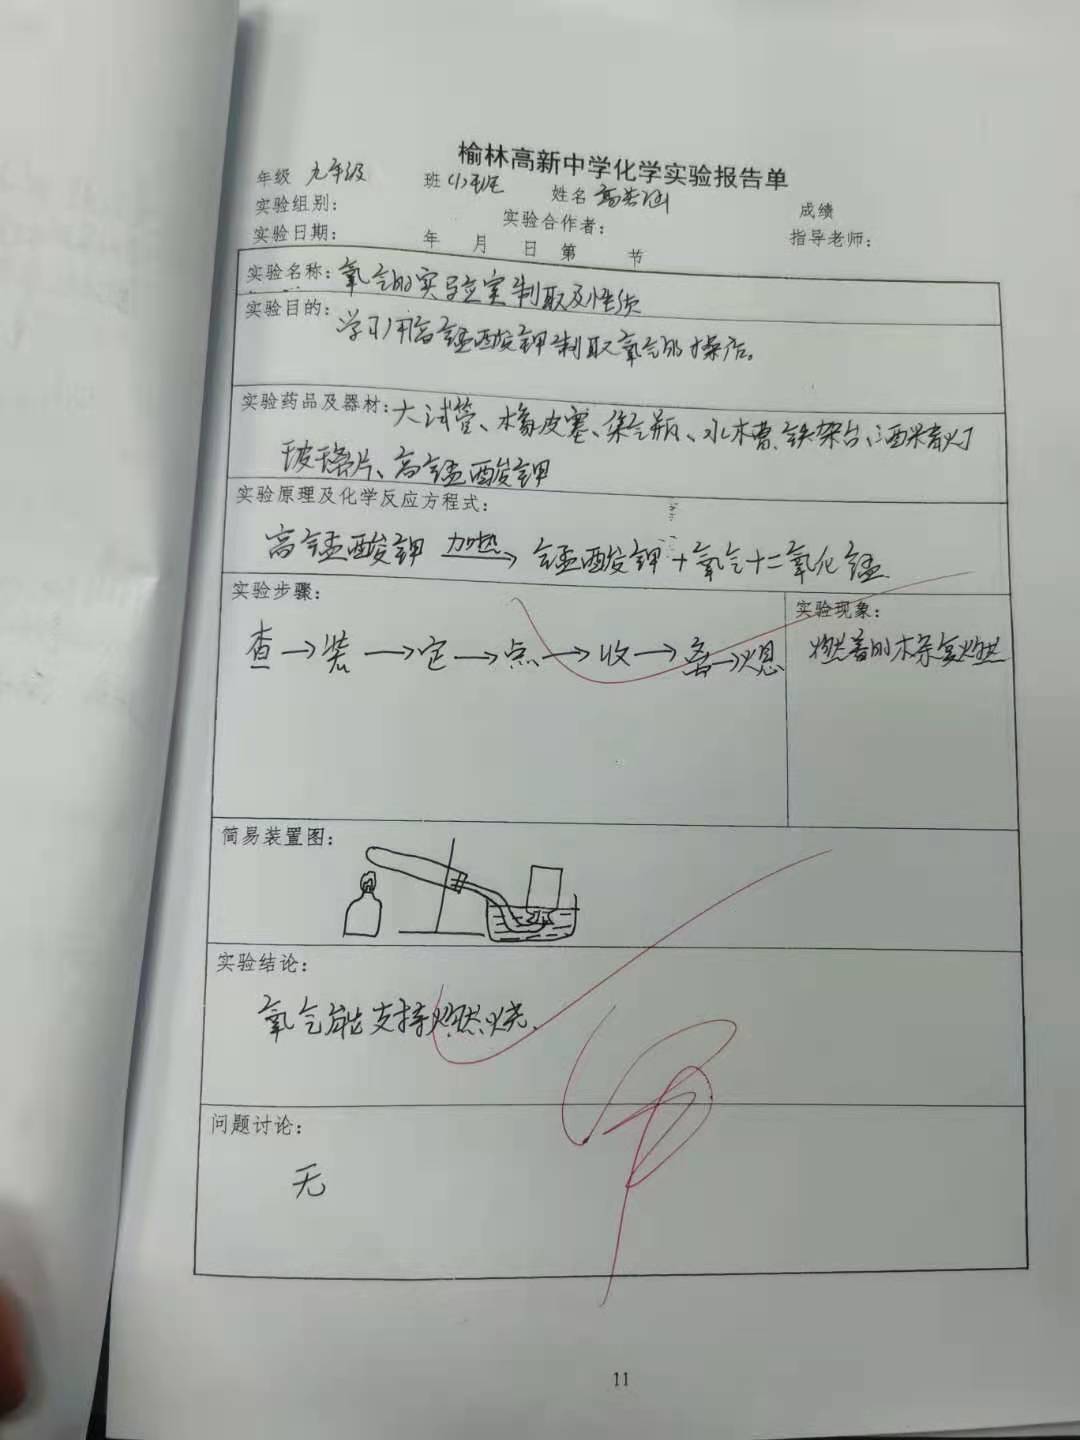 榆林高新中学化学实验报告单
年级 九年级 班 (1)班 姓名 高浩涵 成绩
实验组别: 实验合作者: 指导老师:
实验日期: 年 月 日 第 节
实验名称: 氧气的实验室制取及性质
实验目的: 学习用高锰酸钾制取氧气的操作。
实验药品及器材: 大试管、橡皮塞、集气瓶、水槽、铁架台、酒精灯
玻璃片、高锰酸钾
实验原理及化学反应方程式:
高锰酸钾 加热→ 锰酸钾+氧气+二氧化锰
实验步骤:
查→装→定→点→收→离→熄
实验现象:
燃着的木条复燃
简易装置图:
实验结论:
氧气能支持燃烧.
问题讨论:
无
11